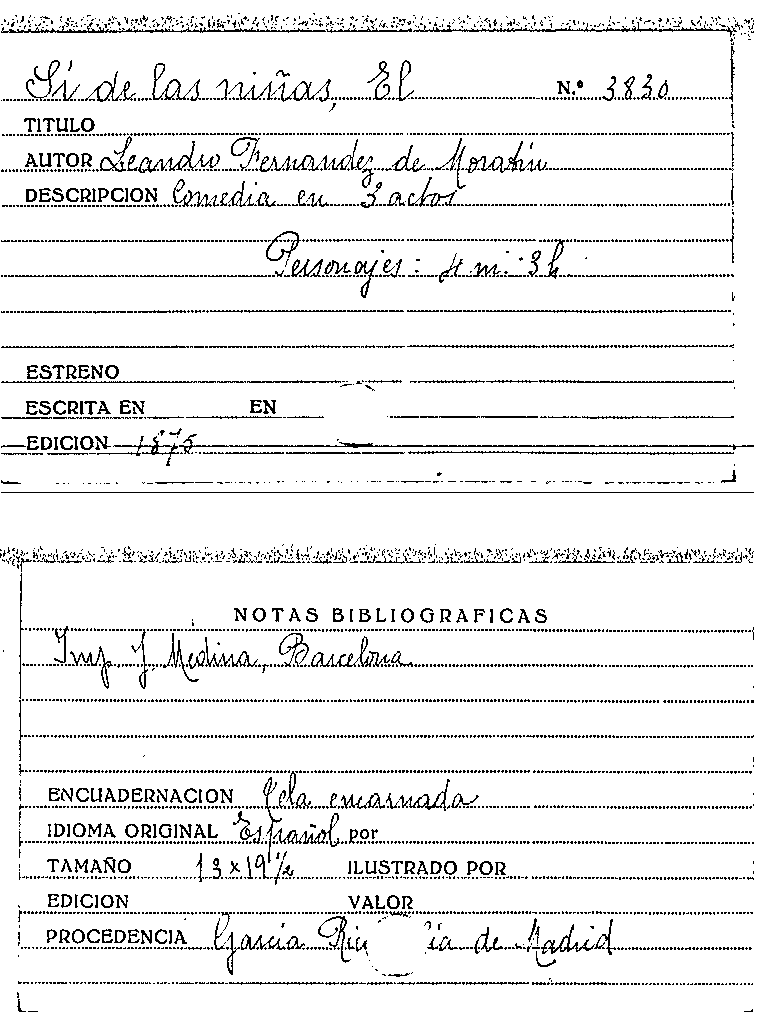 Sí de las niñas, El N.º 3830
TITULO
AUTOR Leandro Fernandez de Moratín
DESCRIPCION Comedia en 3 actos
Personajes: 4 m. 3 h.
ESTRENO
ESCRITA EN EN
EDICION 1875
NOTAS BIBLIOGRAFICAS
Imp. J. Medina, Barcelona
ENCUADERNACION Tela encarnada
IDIOMA ORIGINAL Español por
TAMAÑO 13 x 19 1/2 ILUSTRADO POR
EDICION VALOR
PROCEDENCIA García de Madrid